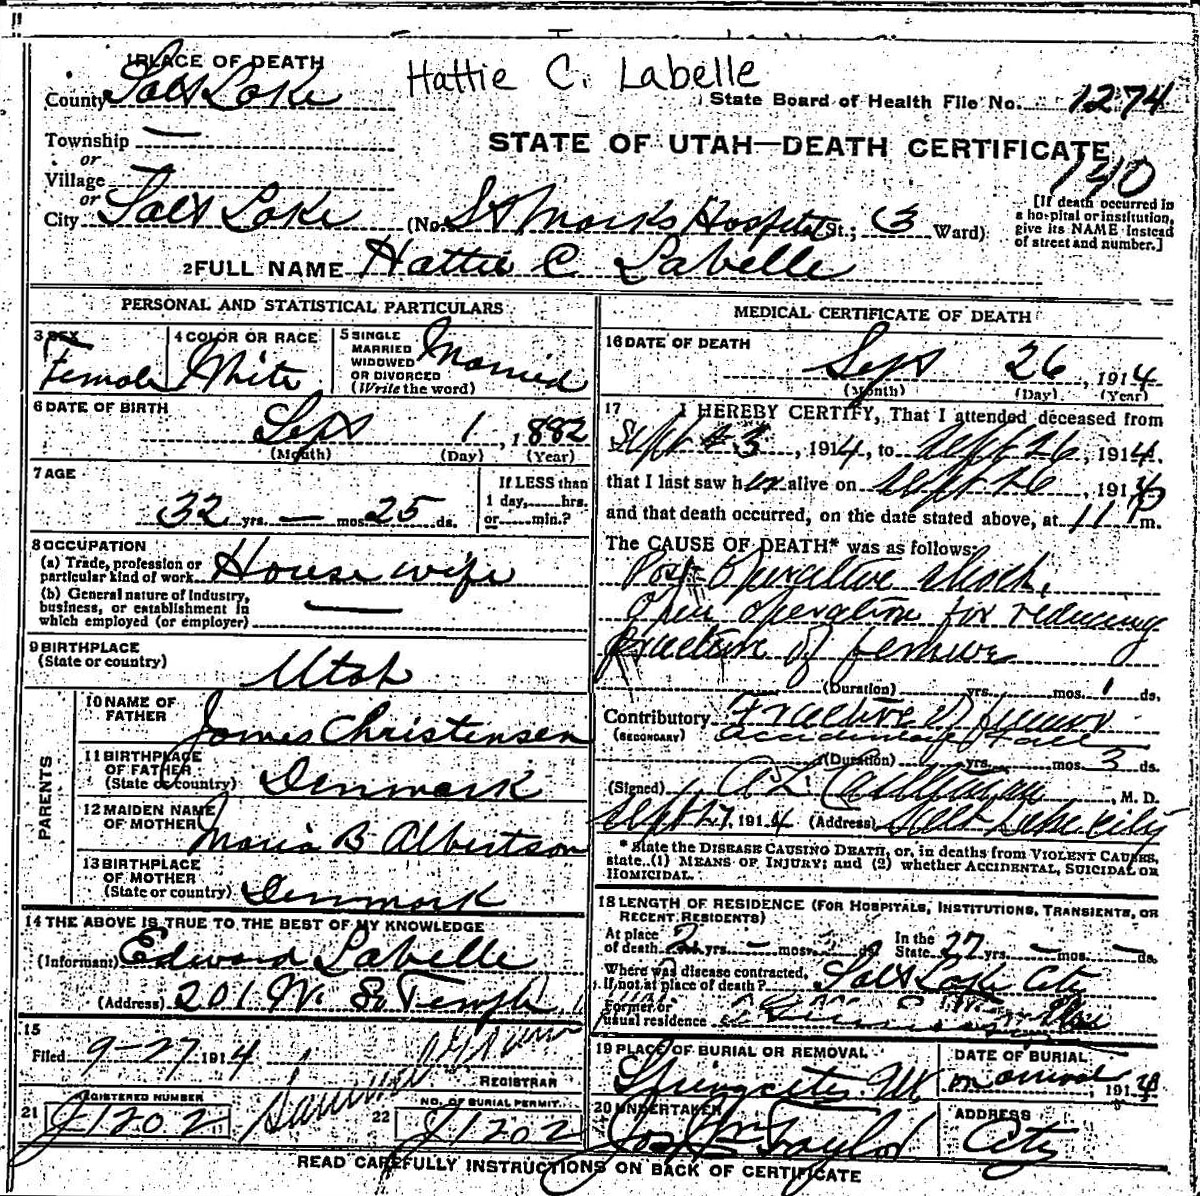 Hattie C. Labelle
1 PLACE OF DEATH
County Salt Lake
State Board of Health File No. 1274
Township —
STATE OF UTAH—DEATH CERTIFICATE
or
Village
140
or
City Salt Lake (No. St Marks Hospital St.; 3 Ward)
[If death occurred in a hospital or institution, give its NAME instead of street and number.]
2 FULL NAME Hattie C Labelle
PERSONAL AND STATISTICAL PARTICULARS
3 SEX Female
4 COLOR OR RACE White
5 SINGLE MARRIED WIDOWED OR DIVORCED (Write the word) Married
6 DATE OF BIRTH
Sept 1, 1882
(Month) (Day) (Year)
7 AGE
32 yrs. — mos. 25 ds.
If LESS than 1 day, hrs. or min.?
8 OCCUPATION
(a) Trade, profession or particular kind of work House wife
(b) General nature of industry, business, or establishment in which employed (or employer) —
9 BIRTHPLACE
(State or country) Utah
PARENTS
10 NAME OF FATHER James Christensen
11 BIRTHPLACE OF FATHER (State or country) Denmark
12 MAIDEN NAME OF MOTHER Maria B Albertson
13 BIRTHPLACE OF MOTHER (State or country) Denmark
14 THE ABOVE IS TRUE TO THE BEST OF MY KNOWLEDGE
(Informant) Edward Labelle
(Address) 201 W. So Temple
15
Filed 9-27 1914
REGISTRAR
REGISTERED NUMBER
21 J1202
NO. OF BURIAL PERMIT
22 J1202
MEDICAL CERTIFICATE OF DEATH
16 DATE OF DEATH
Sept 26, 1914
(Month) (Day) (Year)
17 I HEREBY CERTIFY, That I attended deceased from
Sept 23, 1914, to Sept 26, 1914.
that I last saw her alive on Sept 26, 1914
and that death occurred, on the date stated above, at 11 P m.
The CAUSE OF DEATH* was as follows:
Post Operative shock,
Open operation for reducing
fracture of femur
(Duration) yrs. mos. 1 ds.
Contributory Fracture of femur
(SECONDARY) accidental fall
(Duration) yrs. mos. 3 ds.
(Signed) M. D.
Sept 27, 1914 (Address) Salt Lake City
* State the DISEASE CAUSING DEATH, or, in deaths from VIOLENT CAUSES, state (1) MEANS OF INJURY; and (2) whether ACCIDENTAL, SUICIDAL OR HOMICIDAL.
18 LENGTH OF RESIDENCE (FOR HOSPITALS, INSTITUTIONS, TRANSIENTS, OR RECENT RESIDENTS)
At place of death 2 yrs. — mos. ds. In the State 27 yrs. — mos. — ds.
Where was disease contracted, if not at place of death? Salt Lake City
Former or usual residence
19 PLACE OF BURIAL OR REMOVAL
Spring city Ut
DATE OF BURIAL
on arrival, 1914
20 UNDERTAKER
Jos Wm Taylor
ADDRESS
City
READ CAREFULLY INSTRUCTIONS ON BACK OF CERTIFICATE